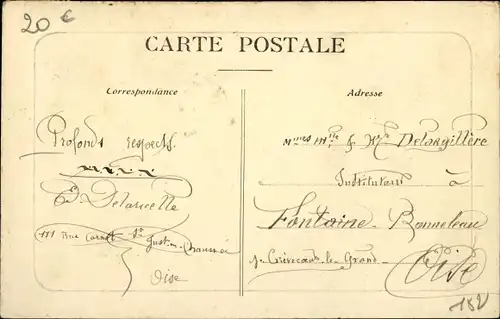 20 €
CARTE POSTALE
Correspondance
Adresse
Profonds respects
Mmes Mlle & Mr Delargillère
Instituteurs à
E. Delacelle
Fontaine-Bonneleau
111 Rue Carnot St Just-en-Chaussée
Oise
pr Crèvecoeur-le-Grand
Oise
182